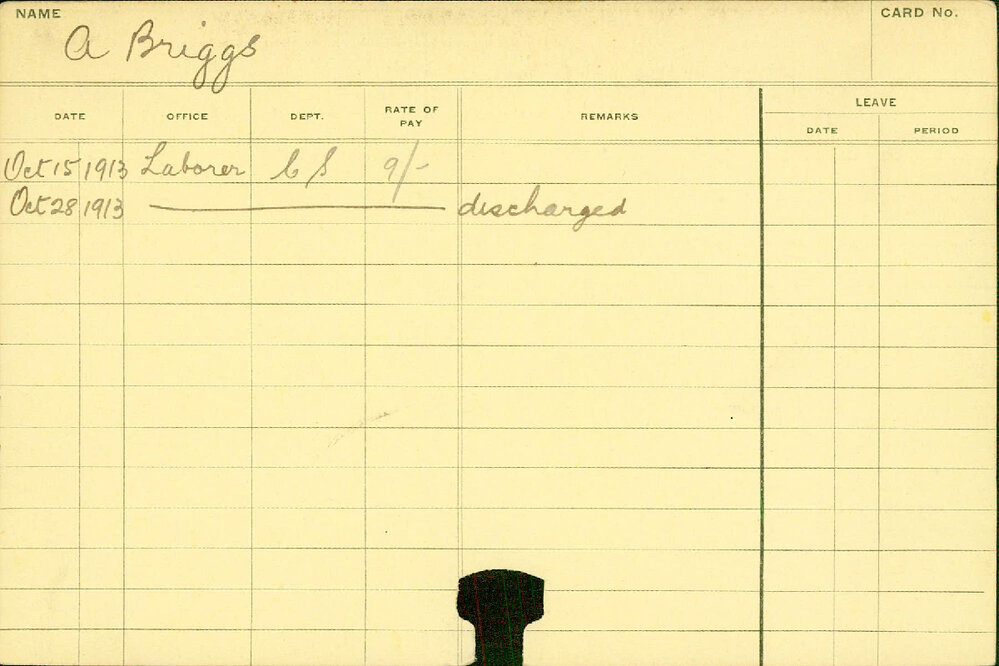 NAME CARD No.
A Briggs
LEAVE
DATE OFFICE DEPT. RATE OF PAY REMARKS DATE PERIOD
Oct 15 1913 Laborer C S 9/-
Oct 28 1913 discharged